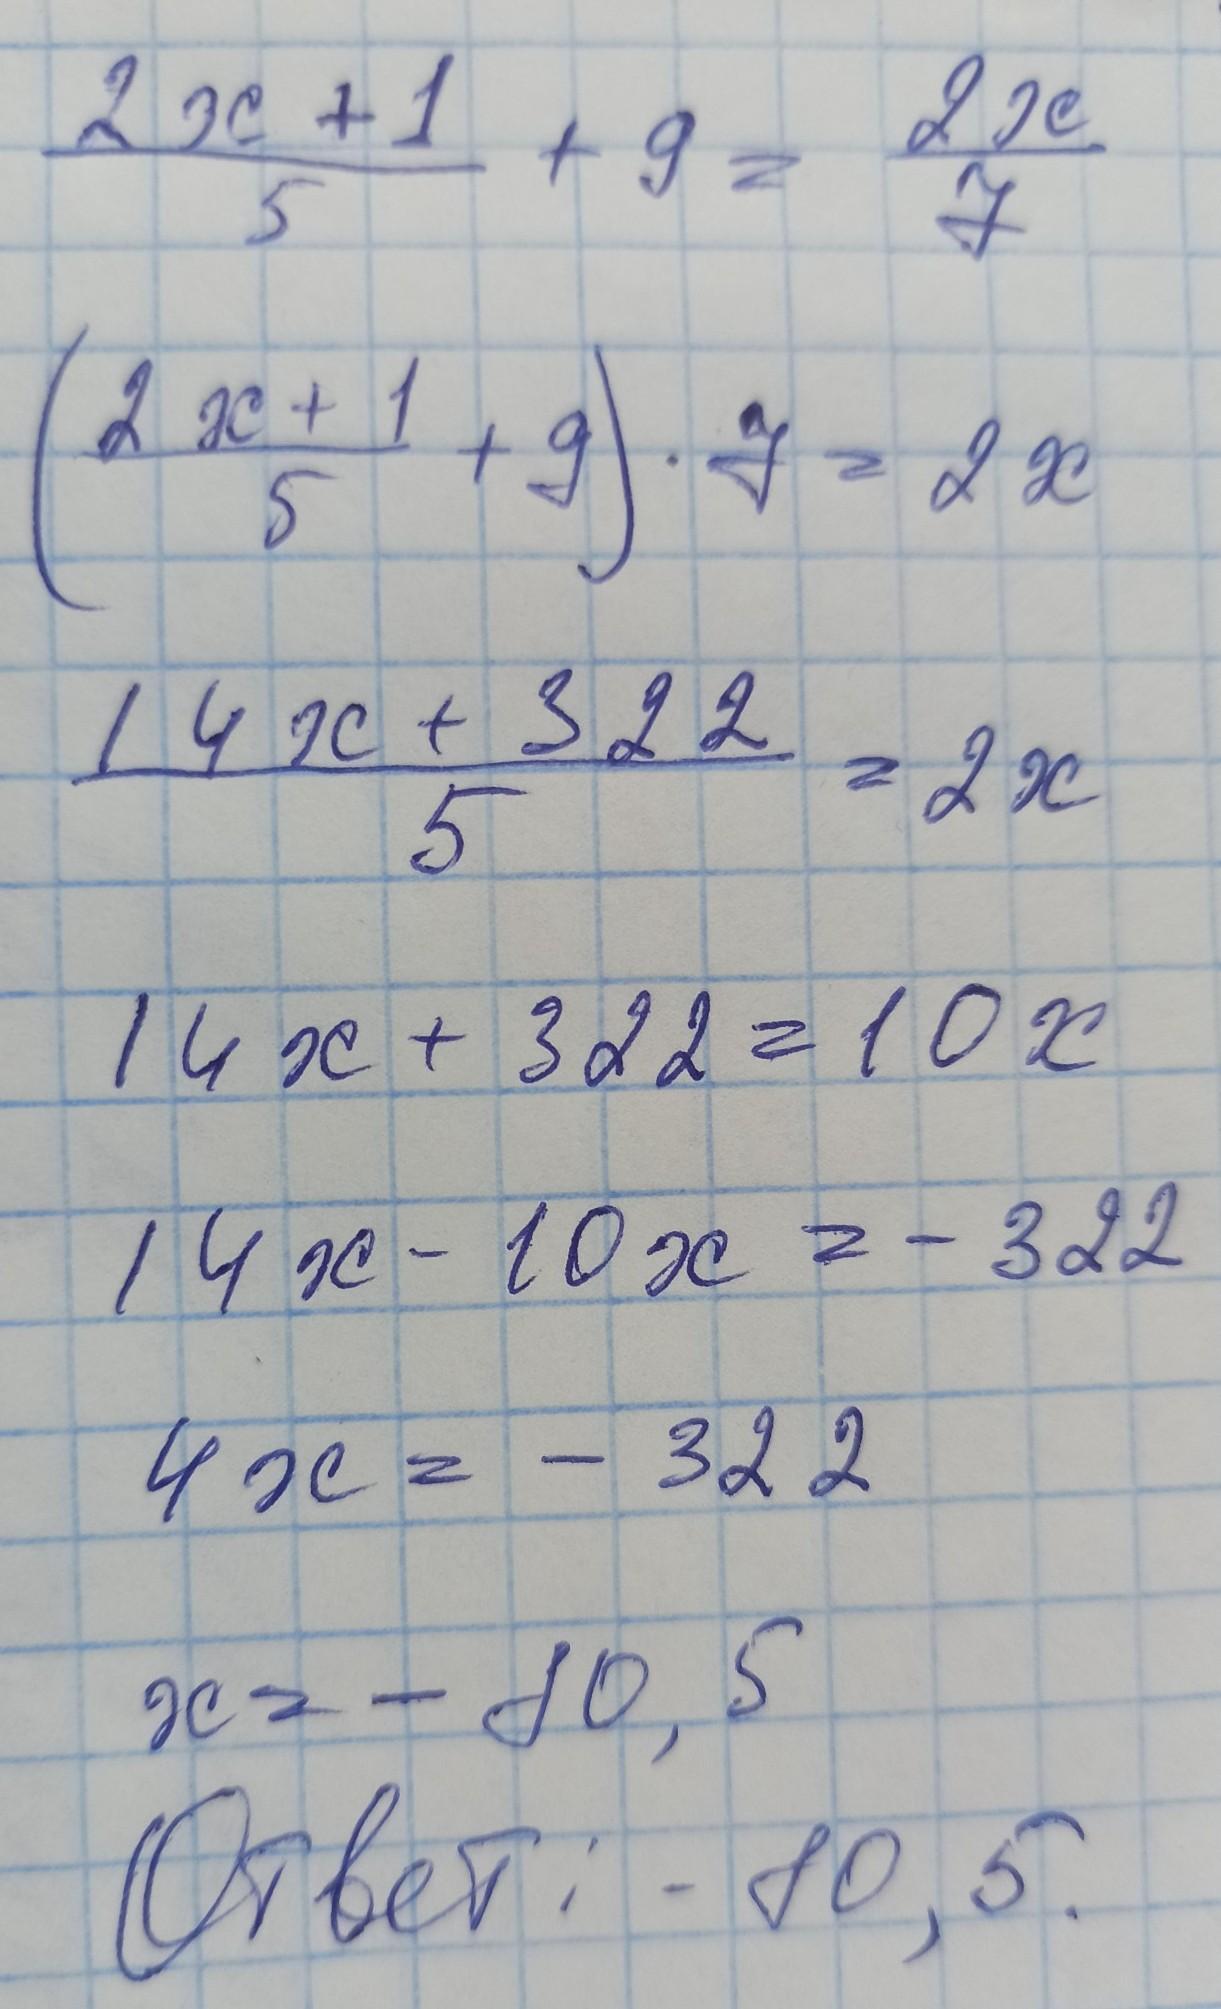 (2x + 1)/5 + 9 = 2x/7
((2x + 1)/5 + 9) · 7 = 2x
(14x + 322)/5 = 2x
14x + 322 = 10x
14x - 10x = - 322
4x = - 322
x = - 80,5
Ответ: - 80,5.